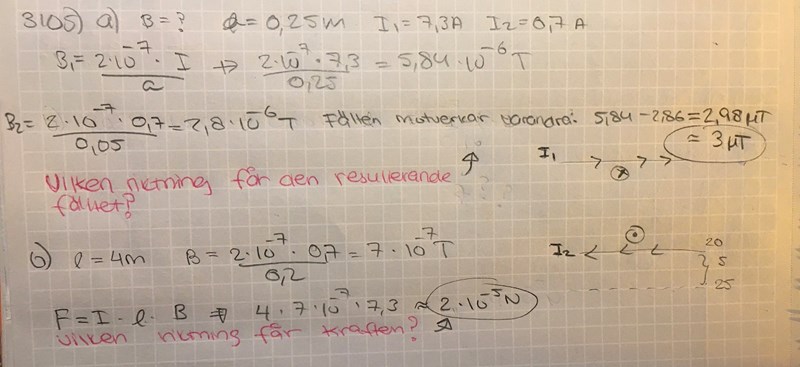 3105) a) B = ? a = 0,25m I₁ = 7,3A I₂ = 0,7A
B₁ = 2·10⁻⁷ · I / a → 2·10⁻⁷ · 7,3 / 0,25 = 5,84 · 10⁻⁶ T
B₂ = 2·10⁻⁷ · 0,7 / 0,05 = 2,8 · 10⁻⁶ T Fälten motverkar varandra: 5,84 - 2,86 = 2,98 μT
≈ 3 μT
I₁
Vilken riktning får den resulterande
fältet?
b) l = 4m B = 2·10⁻⁷ · 0,7 / 0,2 = 7 · 10⁻⁷ T
I₂ 20
5
25
F = I · l · B ⇒ 4 · 7·10⁻⁷ · 7,3 ≈ 2·10⁻⁵ N
Vilken riktning får kraften?